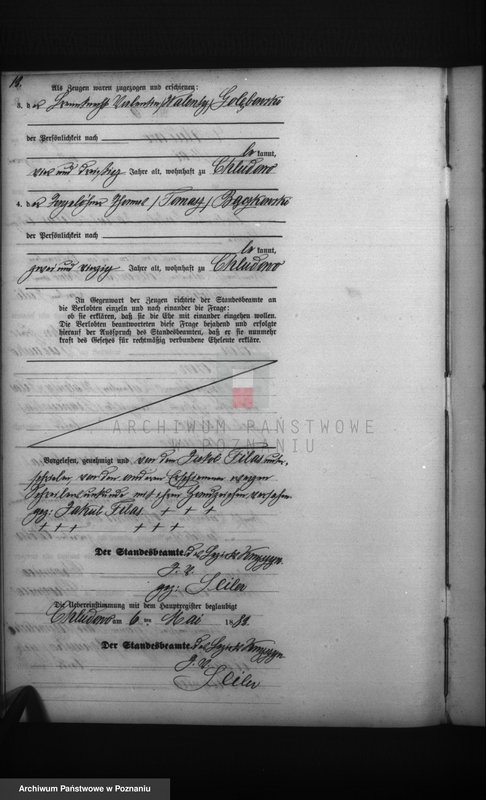 Als Zeugen waren zugezogen und erschienen:
3. der Valentin /Valenty/ Golębowski
der Persönlichkeit nach
be kannt,
vier und dreißig Jahre alt, wohnhaft zu Chludowo
4. der Tagelöhner Thomas /Tomasz/ Bączkowski
der Persönlichkeit nach
be kannt,
zwei und vierzig Jahre alt, wohnhaft zu Chludowo
In Gegenwart der Zeugen richtete der Standesbeamte an
die Verlobten einzeln und nach einander die Frage:
ob sie erklären, daß sie die Ehe mit einander eingehen wollen.
Die Verlobten beantworteten diese Frage bejahend und erfolgte
hierauf der Ausspruch des Standesbeamten, daß er sie nunmehr
kraft des Gesetzes für rechtmäßig verbundene Eheleute erkläre.
ARCHIWUM PAŃSTWOWE
POZNANIU
Vorgelesen, genehmigt und von dem Jakob Filas unter,
schrieben, von den anderen Erschienenen wegen
Schreibensunkunde mit ihren Handzeichen versehen
gez: Jakob Filas + + +
+ + + + + +
Der Standesbeamte. des Bezirks
J. V.
gez:
Die Uebereinstimmung mit dem Hauptregister beglaubigt
Chludowo am 6 ten Mai 18
Der Standesbeamte. des Bezirks
J. V.
Archiwum Państwowe w Poznaniu